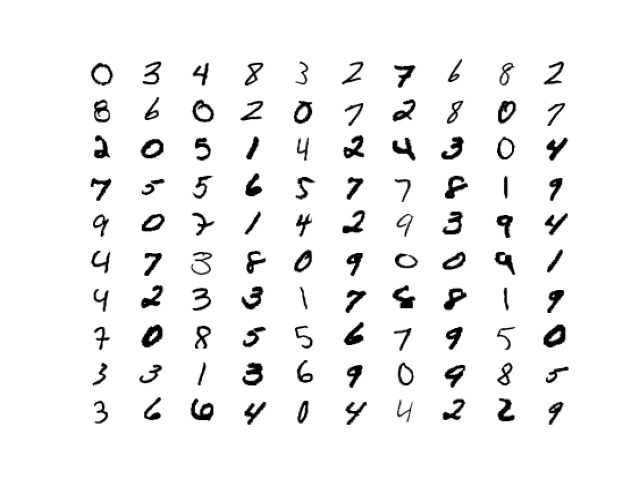 0 3 4 8 3 2 7 6 8 2
8 6 0 2 0 7 2 8 0 7
2 0 5 1 4 2 4 3 0 4
7 5 5 6 5 7 7 8 1 9
9 0 7 1 4 2 9 3 9 4
4 7 3 8 0 9 0 0 9 1
4 2 3 3 1 7 8 8 1 9
7 0 8 5 5 6 7 9 5 0
3 3 1 3 6 9 0 9 8 5
3 6 6 4 0 4 4 2 2 9